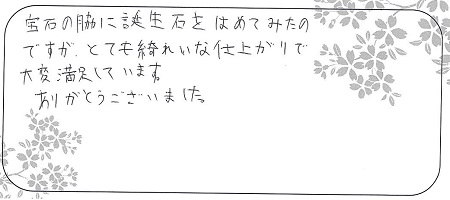 宝石の脇に誕生石をはめてみたの
ですが、とても綺れいな仕上がりで
大変満足しています。
ありがとうございました。